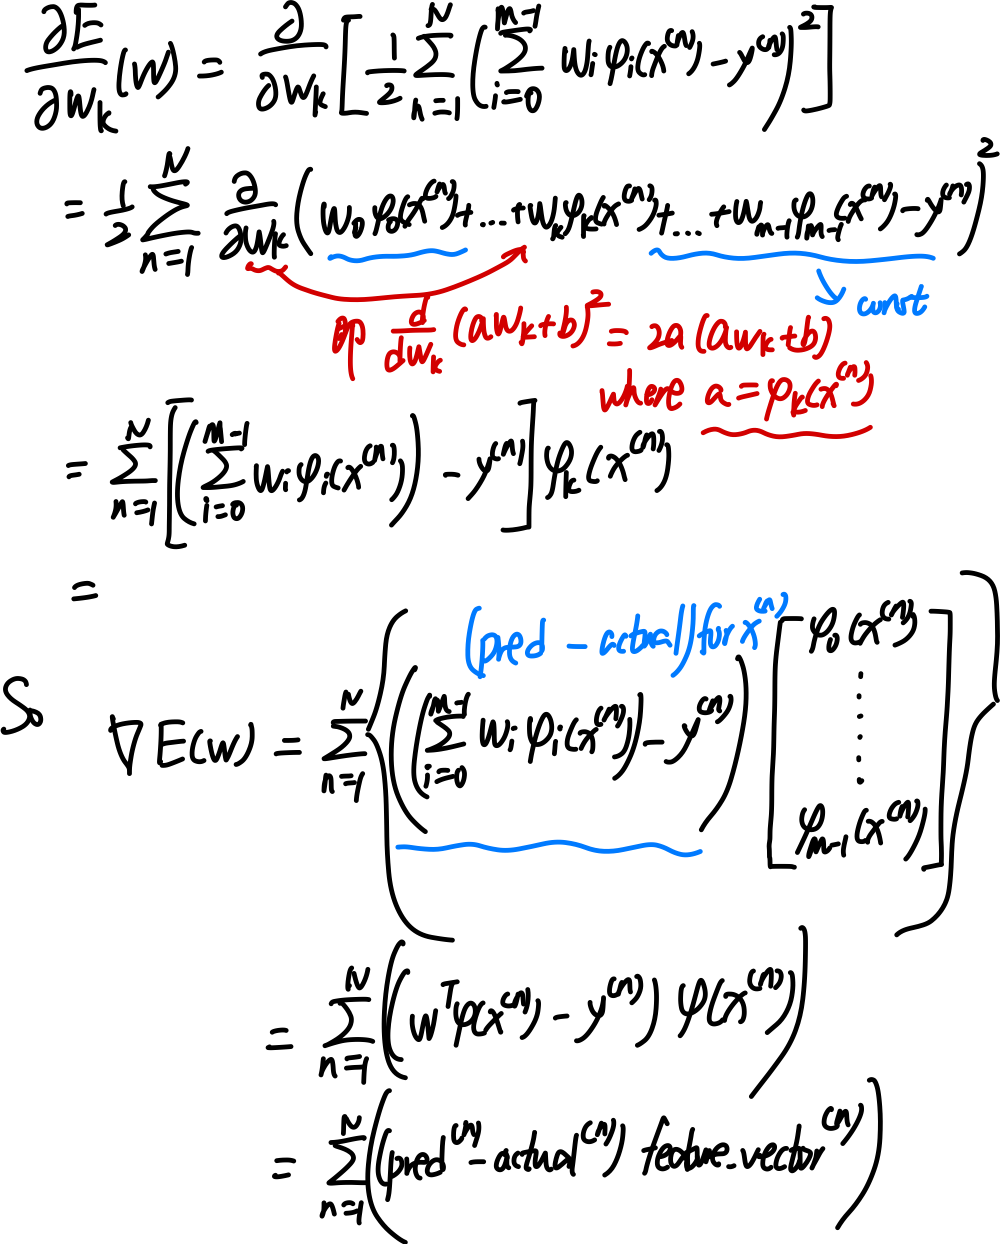 ∂E/∂w_k (w) = ∂/∂w_k [ 1/2 Σ_{n=1}^{N} ( Σ_{i=0}^{m-1} w_i φ_i(x^{(n)}) - y^{(n)} )^2 ]
= 1/2 Σ_{n=1}^{N} ∂/∂w_k ( w_0 φ_0(x^{(n)}) + ... + w_k φ_k(x^{(n)}) + ... + w_{m-1} φ_{m-1}(x^{(n)}) - y^{(n)} )^2
const
d/dw_k (aw_k+b)^2 = 2a(aw_k+b)
where a = φ_k(x^{(n)})
= Σ_{n=1}^{N} [ ( Σ_{i=0}^{m-1} w_i φ_i(x^{(n)}) ) - y^{(n)} ] φ_k(x^{(n)})
=
(pred - actual) for x^{(n)}
So ∇E(w) = Σ_{n=1}^{N} { ( ( Σ_{i=0}^{m-1} w_i φ_i(x^{(n)}) ) - y^{(n)} ) [ φ_0(x^{(n)}) ⋮ φ_{m-1}(x^{(n)}) ] }
= Σ_{n=1}^{N} ( ( w^T φ(x^{(n)}) - y^{(n)} ) φ(x^{(n)}) )
= Σ_{n=1}^{N} ( ( pred^{(n)} - actual^{(n)} ) feature_vector^{(n)} )